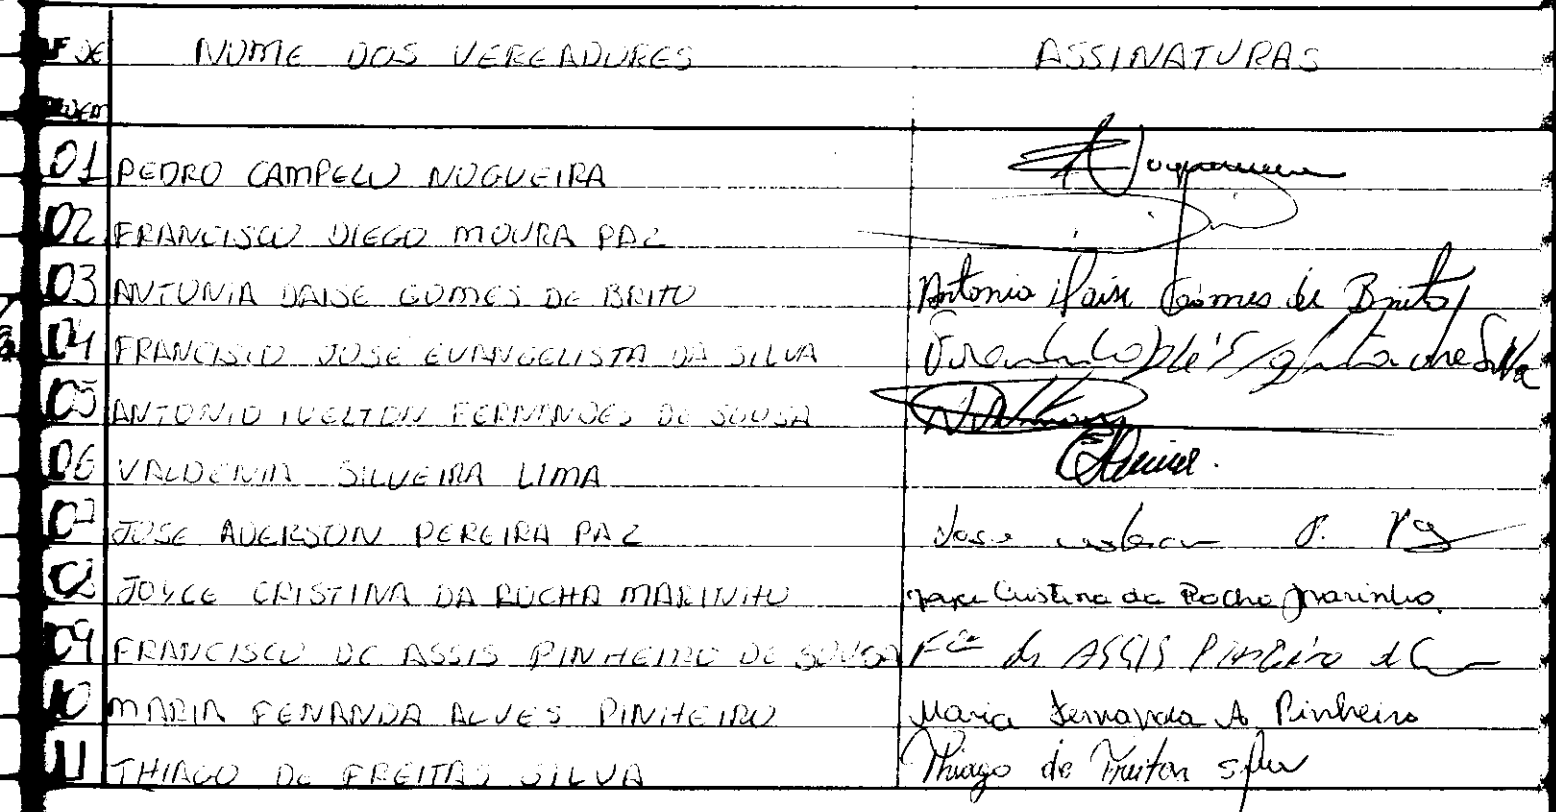 Nº DE ORDEM NOME DOS VEREADORES ASSINATURAS
01 PEDRO CAMPELO NOGUEIRA
02 FRANCISCO DIEGO MOURA PAZ
03 ANTONIA DAISE GOMES DE BRITO Antonia Daise Gomes de Brito
04 FRANCISCO JOSÉ EVANGELISTA DA SILVA
05 ANTONIO IVELTON FERNANDES DE SOUSA
06 VALDENIA SILVEIRA LIMA
07 JOSE ADERSON PEREIRA PAZ Jose P. Paz
08 JOYCE CRISTINA DA ROCHA MARINHO Joyce Cristina da Rocha Marinho
09 FRANCISCO DE ASSIS PINHEIRO DE SOUSA Fco de ASSIS Pinheiro d
10 MARIA FENANDA ALVES PINHEIRO Maria Fernanda A Pinheiro
11 THIAGO DE FREITAS SILVA Thiago de Freitas Silva